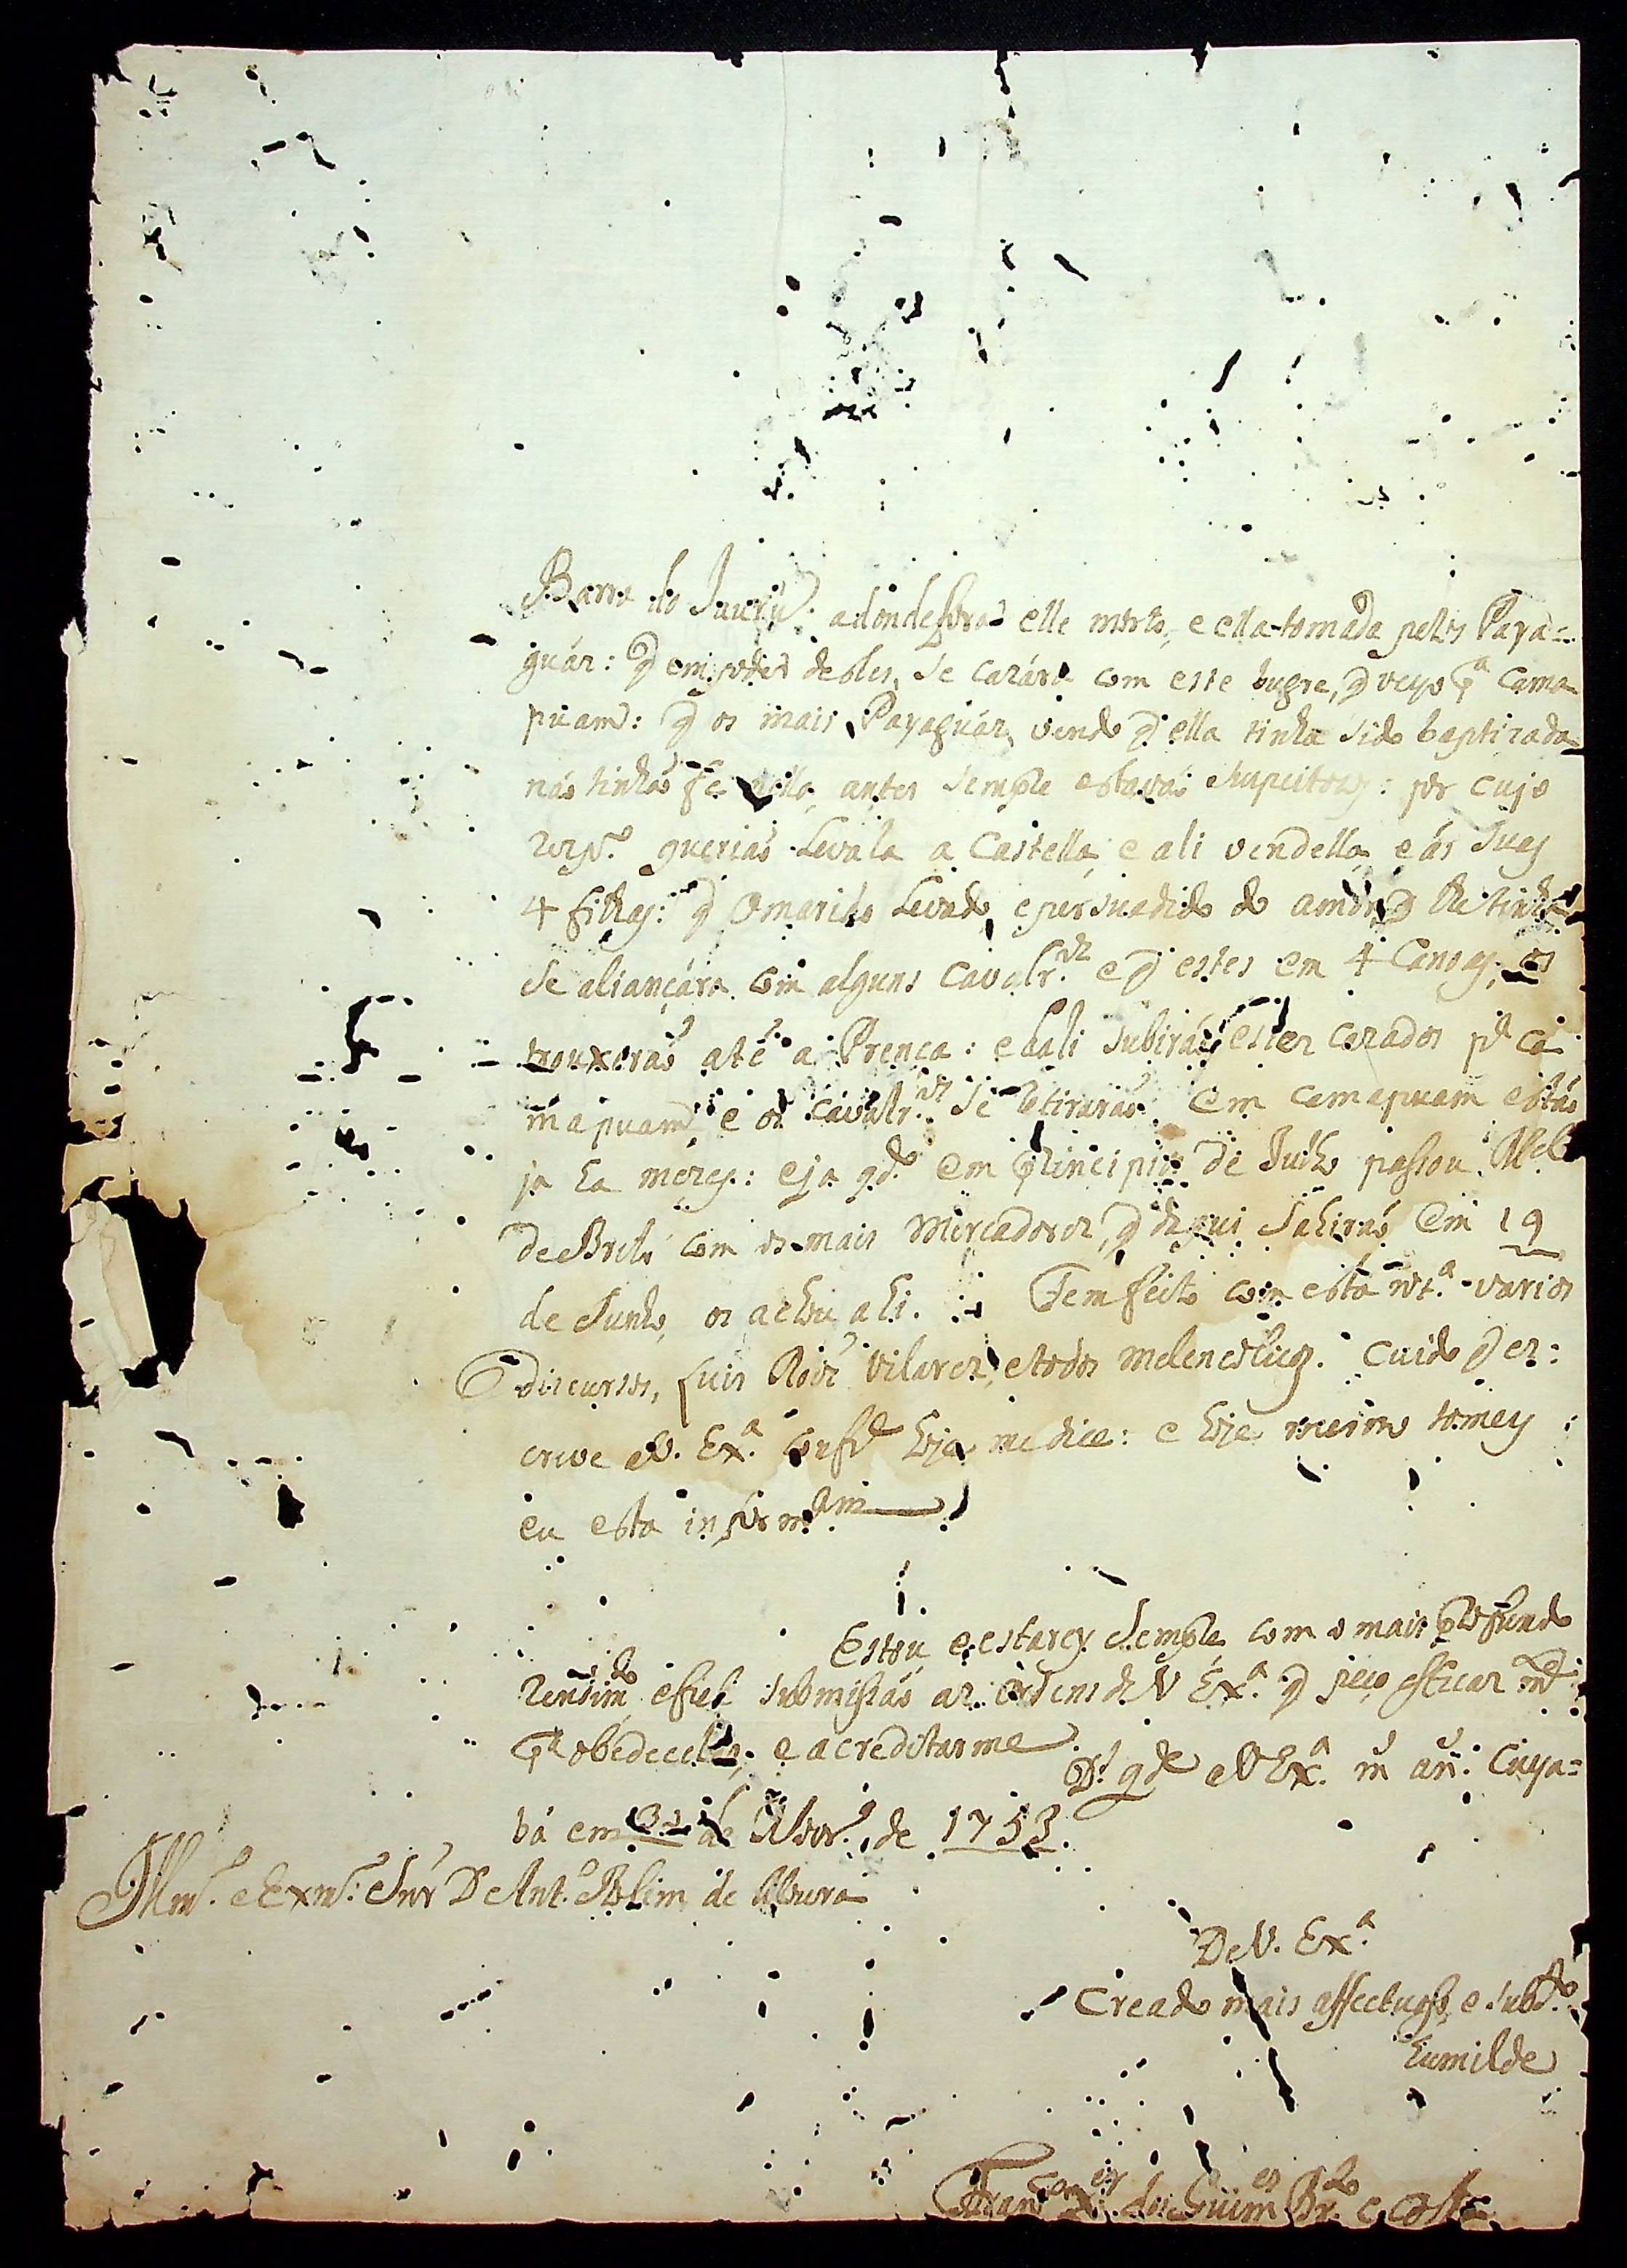 Barra do Jaurû: adonde foraõ elle morto, e ella tomada pelos Paya=
guáz: q̃ em poder delles, se cazára com este bugre, q̃ veyo p.ª Cama
puam: q̃ os mais Payaguáz, vendo q̃ ella tinha sido baptizada
náo tinhaõ fé nella, antes sempre estavaõ suspeitozos: por cujo
queriaõ levala a Castella, e ali vendella, e ás suas
4 filhas: q̃ o marido levado, e persuadido do amor q̃ lhe tinha
se aliançára com alguns cavalr.os e q̃ estes em 4 Canoas, os
trouxeraõ até a Prença: e dali subiraõ estes cazados p.ª Ca
mapuam, e os cavalr.os se retiraraõ. Em camapuam estaõ
ja ha mezes: e ja qd.º em principio de Julho passou Mel
de Brito com os mais Mercadores, q̃ daqui sahiraõ em 19
de Junho, os achou ahi. Tem feito com esta not.ª varios
discursos, Luis Roiz Vilares, e todos melencolicos. Cuido q̃ es:
creve a V. Ex.ª conf.e hoje me dice: e hoje mesmo tomey
eu esta inform.am
Estou, e estarey sempre com o mais profundo
rendim.to e fiel submissaõ as ordens de V Ex.ª q̃ peço
p.ª obedecellas, e acreditarme. D.s g.de a V Ex.ª m an.s Cuya=
bá em de Nov.º de 1753.
Illm.º e Exm.º Snr D Ant.º Rolim de Moura
De V. Ex.ª
Creado mais affectuozo, e subd.to
humilde
Fran.co X.er dos Guim.es Br.to e Costa